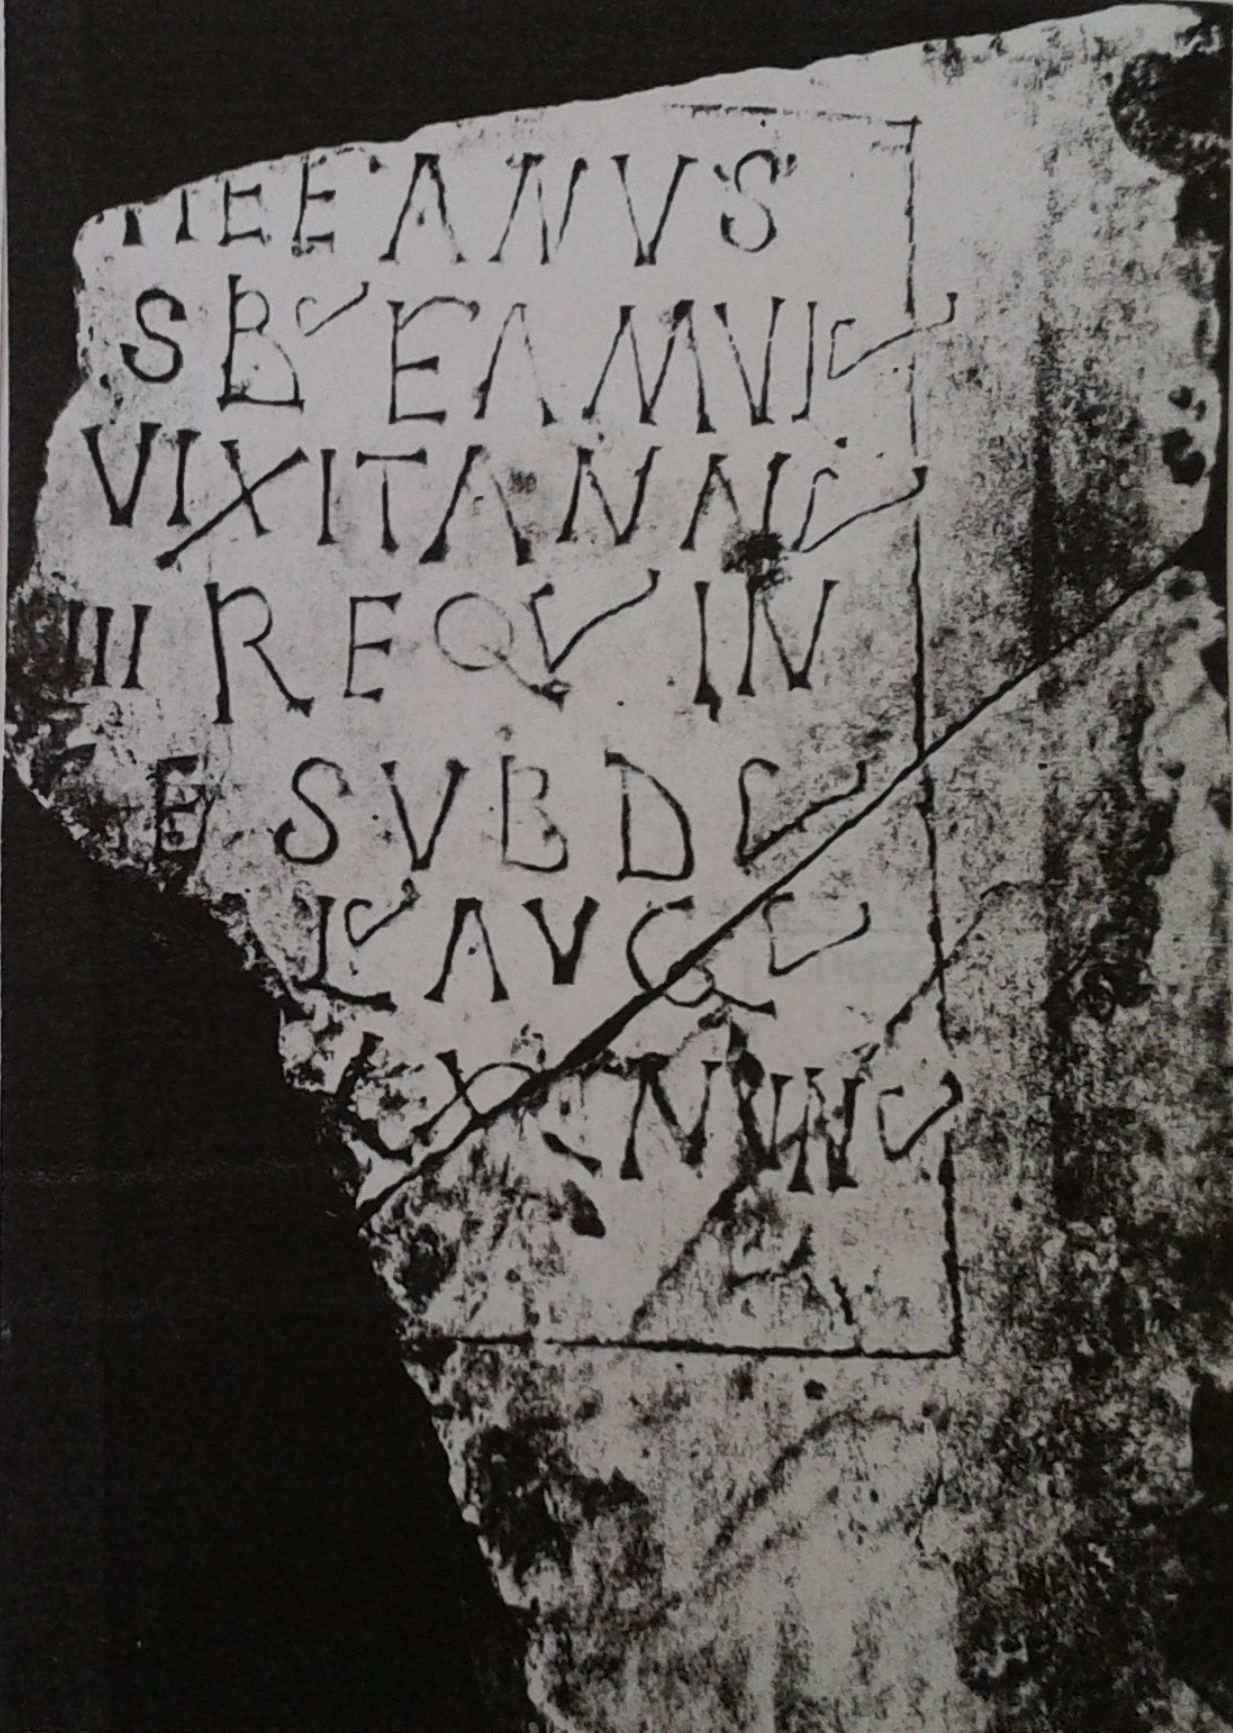 EFANVS
SB EAMVL
VIXIT ANN
III REQV IN
E SVBD
L AVG